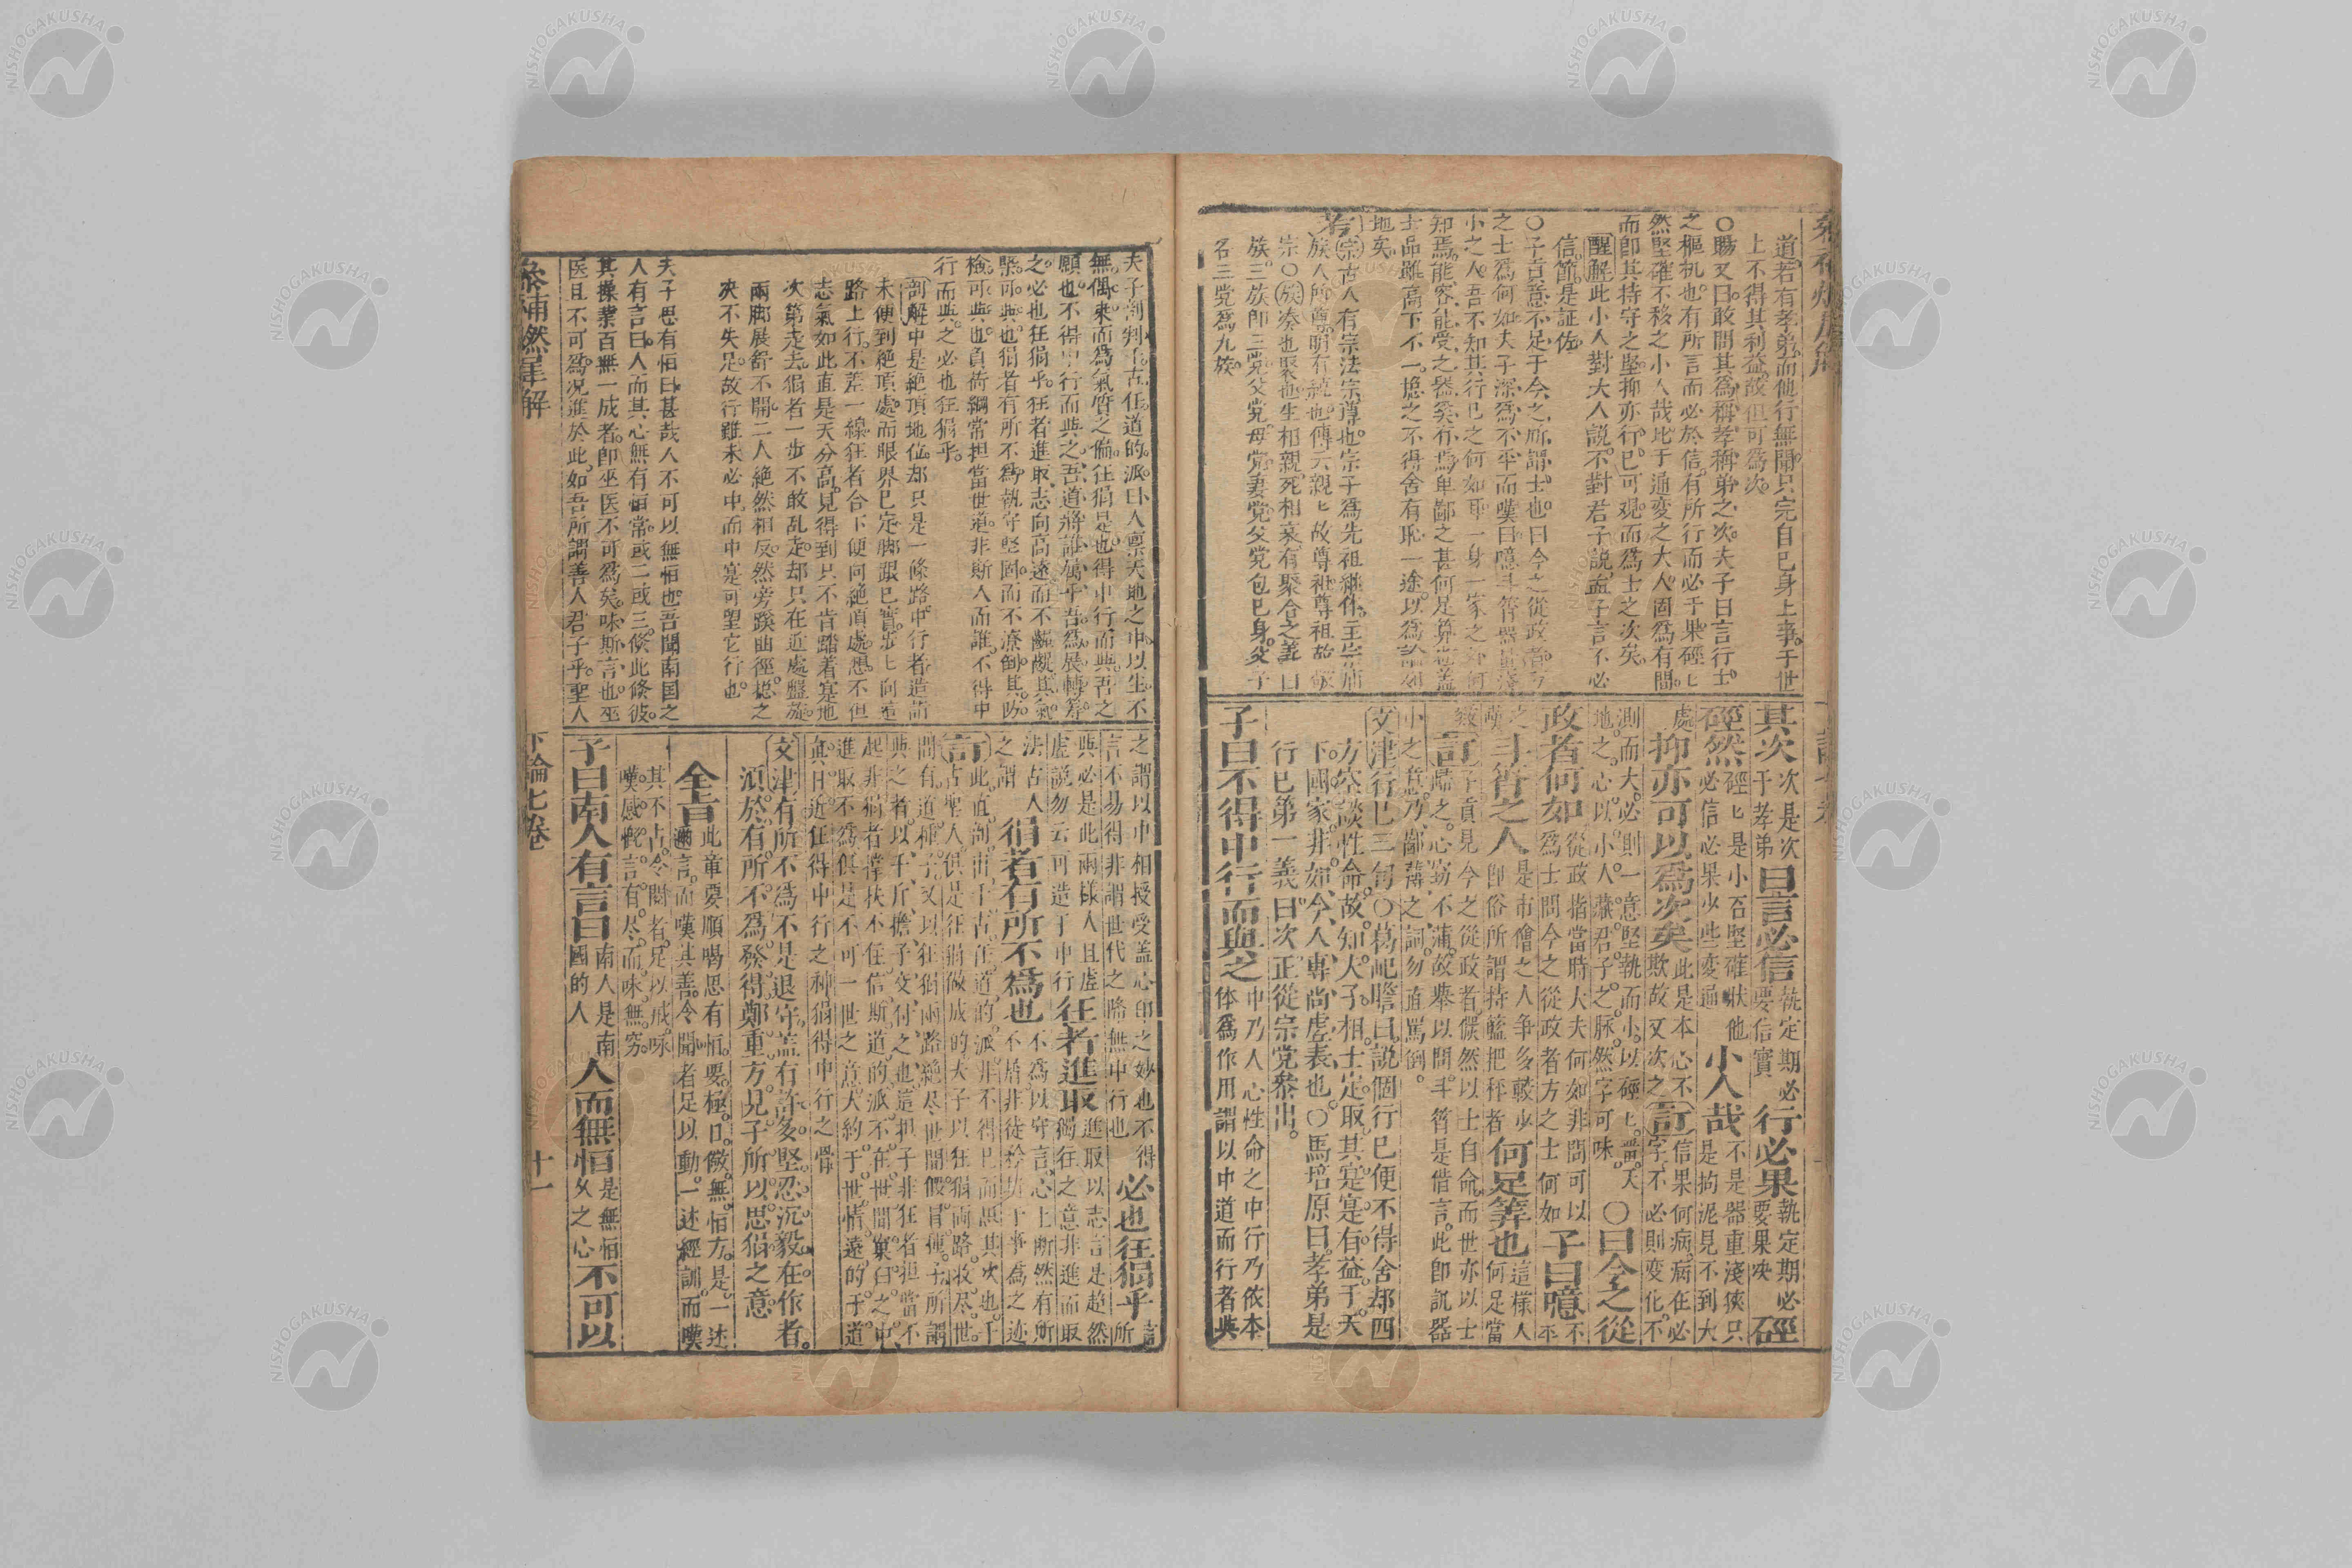 道若有孝弟而他行無聞只完自已身上事于世
上不得其利益故但可為次
○賜又曰敢問其為稱孝稱弟之次夫子曰言行士
之樞机也有所言而必於信有所行而必于果硜匕
然堅確不移之小人哉比于通變之大人固為有間
而即其持守之堅抑亦行已可观而為士之次矣
醒解此小人對大人說不對君子說孟子言不必
信節是証佐
○子貢意不足于今之所謂士也曰今之從政者
之士為何如夫子深為不平而嘆曰噫斗筲
小之人吾不知其行已之何如耳一身一家之外何
知焉能容能受之器奚有焉卑鄙之甚何足算也盖
士品雖高下不一揔之不得舍有恥一途以為
地矣
考宗古人有宗法宗尊也宗子為先祖繼体主
族人所尊明有統也傳六親匕故尊祖尊祖故敬
宗○族湊也聚也生相親死相哀有聚合之義曰
族三族即三党父党母党妻党父党包已身父子
名三党為九族
其次次是次于孝弟曰言必信執定期必要信實行必果執定期必要果决硜
硜然硜匕是小石堅確狀他必信必果少些變通小人哉不是器重淺狹只是拘泥見不到大
處抑亦可以為次矣此是本心不欺故又次之訂信果何病病在必字不必則变化不
測而大必則一意堅執而小以硜匕
地之心以小人蔽君子之脉然字可味○曰今之從
政者何如從政指當時大夫何如非問可以為士問今之從政者方之士何如子曰噫不平
之斗筲之人是市儈之人争多較少即俗所謂持籃把秤者何足算也這樣人何足當
訂子貢見今之從政者儼然以士自命而世亦以士
歸之心窃不滿故舉以問斗筲是借言此即訊器
小之意乃鄙薄之詞勿直罵倒
文津行已三句○葛屺瞻曰說個行已便不得舍却四
方空談性命故知夫子相士定取其寔寔有益于天
下國家非如今人專尚虚表也○馬培原曰孝弟是
行已第一義曰次正從宗党叅出
子曰不得中行而與之中乃人心性命之中行乃依本体為作用謂以中道而行者與
夫子渊判千古任道的派曰人禀天地之中以生不
無偶来而為氣質之偏狂狷是也得中行而與吾之
願也不得中行而與之吾道將誰属乎吾為展轉筹
之必也狂狷乎狂者進取志向高遠而不齷齪其氣
槩可與也狷者有所不為執守堅固而不潦倒其防
檢可與也負荷綱常担當世道非斯人而誰不得中
行而與之必也狂狷乎
剖解中是絶頂地位却只是一條路中行者造詣
未便到絶頂處而眼界已定脚跟已實步匕向這
路上行不差一線狂者合下便向絶頂處想不但
志氣如此直是天分高見得到只不肯踏着寔地
次第走去狷者一步不敢乱走却只在近處盤旋
兩脚展舒不開二人絶然相反然旁蹊曲徑揔之
决不失足故行雖未必中而中寔可望它行也
夫子思有恒曰甚哉人不可以無恒也吾聞南国之
人有言曰人而其心無有恒常或二或三倏此倏彼
其操業百無一成者即巫医不可為矣味斯言也巫
医且不可為况進於此如吾所謂善人君子乎聖人
之謂以中相授受盖心印之妙也不得言不易得非謂世代之降無中行也必也狂狷乎言所
與必是此兩樣人且虚虚說勿云可造于中行狂者進取進取以志言是超然獨往之意非進而取
法古人之謂狷者有所不為也不為以守言心上断然有所不屑非徒于事為之迹
訂此直渊判千古任道的派非不得已而思其次也千
古聖人俱是狂狷做成的夫子以狂狷兩路收尽世
間有道種子又以狂狷兩路絶尽世間假冒種子所謂
與之者以千斤擔子交付之也這担子非狂者担當不
起非狷者撑扶不住信斯道的派不在世間窠臼之中
進取不為俱是不可一世之意大約于世情遠的于道
真日近狂得中行之神狷得中行之骨
文津有所不為不是退守盖有許多堅忍沉毅在作者
湏於有所不為發得鄭重方見子所以思狷之意
全旨此章要順喝思有恒要極口儆無恒方是一述
南言而嘆其善令聞者足以動一述經訓而嘆
其不占令聞者足以戒咏
嘆感慨言有尽而味無穷
子曰南人有言曰南人是南國的人人而無恒是無恒久之心不可以
叅補燃犀解
下論七卷
十一